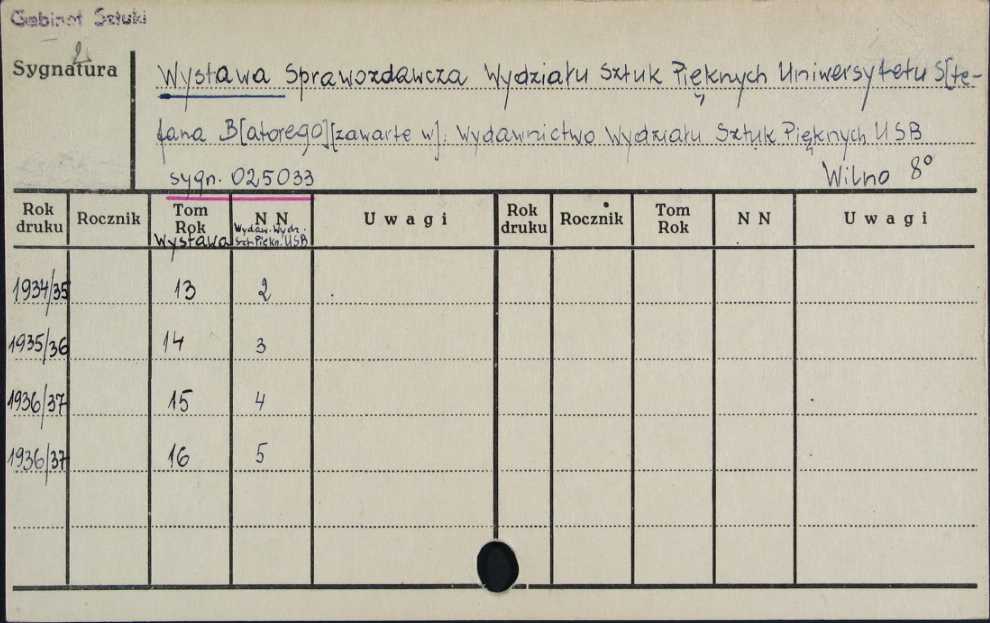 Gabinet Sztuki
2
Sygnatura
Wystawa Sprawozdawcza Wydziału Sztuk Pięknych Uniwersytetu S[te-
fana B[atorego][zawarte w]: Wydawnictwo Wydziału Sztuk Pięknych USB
sygn. 025033 Wilno 8°
Rok druku Rocznik Tom Rok Wystawa N N Wydaw. Wydz. Szt. Piękn. USB Uwagi Rok druku Rocznik Tom Rok N N Uwagi
1934/35 13 2
1935/36 14 3
1936/37 15 4
1936/37 16 5